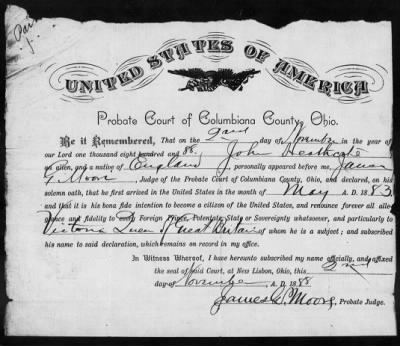 UNITED STATES OF AMERICA
Probate Court of Columbiana County, Ohio.
Be it Remembered, That on the 2nd day of November in the year of
our Lord one thousand eight hundred and 88. John Heathcote
an alien, and a native of England, personally appeared before me, James
G. Moore Judge of the Probate Court of Columbiana County, and declared, on his
solemn oath, that he first arrived in the United States in the month of May A. D. 1883
and that it is his bona fide intention to become a citizen of the United States, and renounce forever all alle-
giance and fidelity to any Foreign Prince, Potentate, State or Sovereignty whatsoever, and particularly to
Victoria Queen of Great Britain of whom he is a subject; and subscribed
his name to said declaration, which remains on record in my office.
In Witness Whereof, I have hereunto subscribed my name officially, and affixed
the seal of said Court, at New Lisbon, Ohio, this 2nd
day of November A. D. 1888
James G. Moore, Probate Judge.